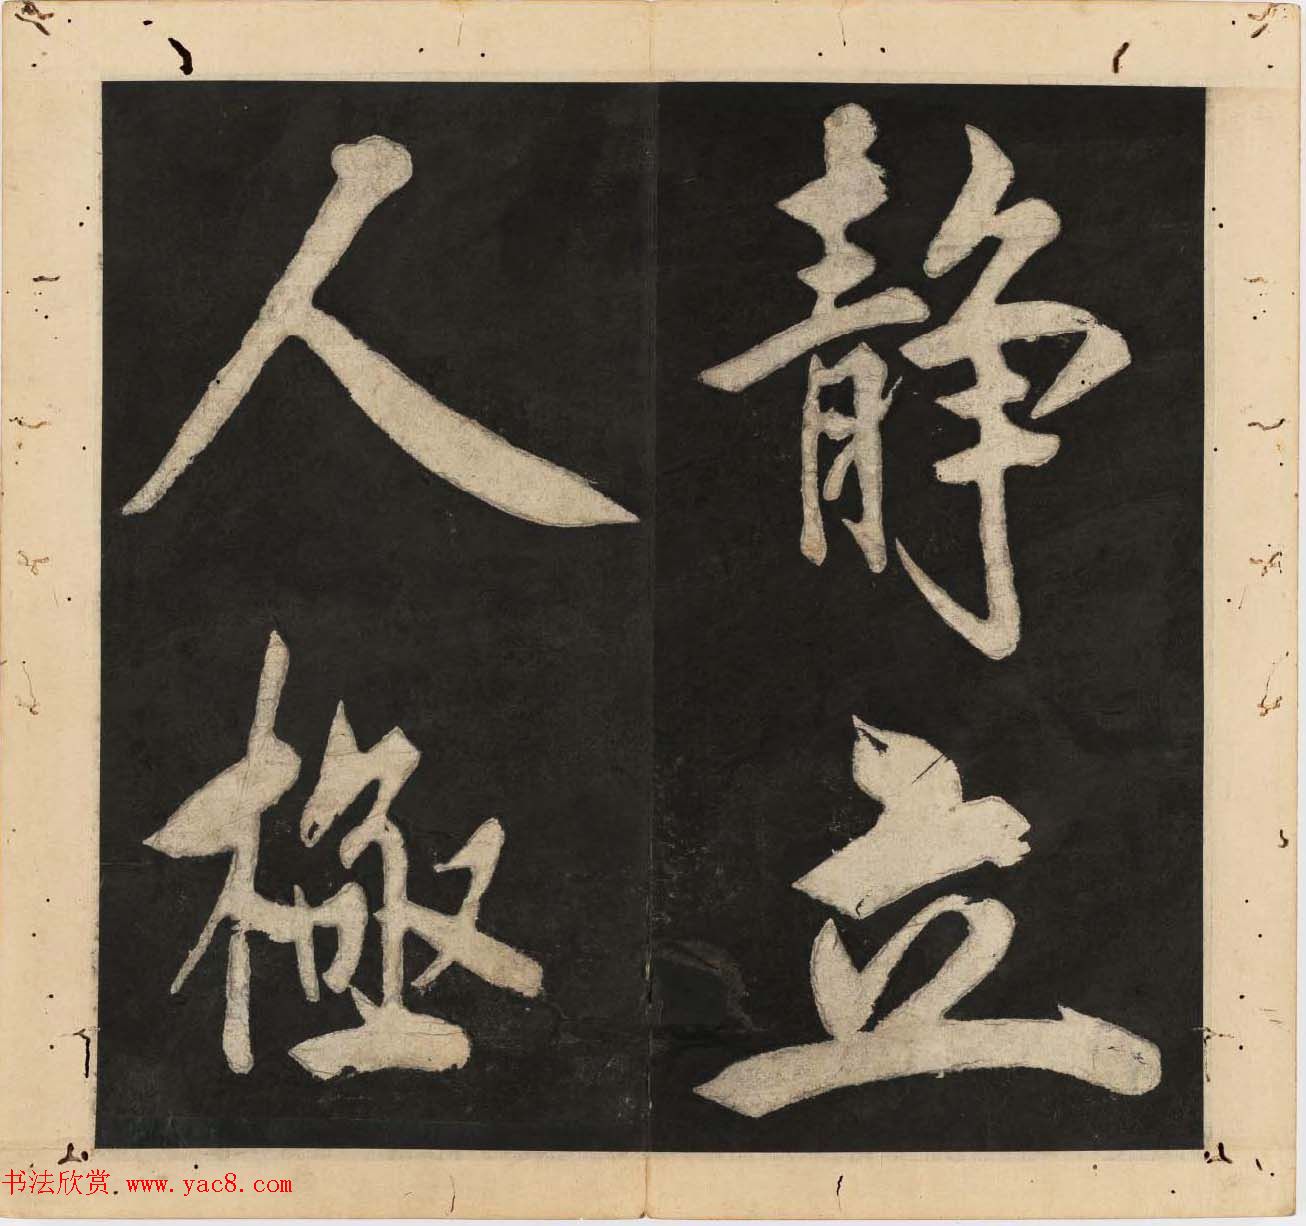 静立
人極
书法欣赏 www.yac8.com